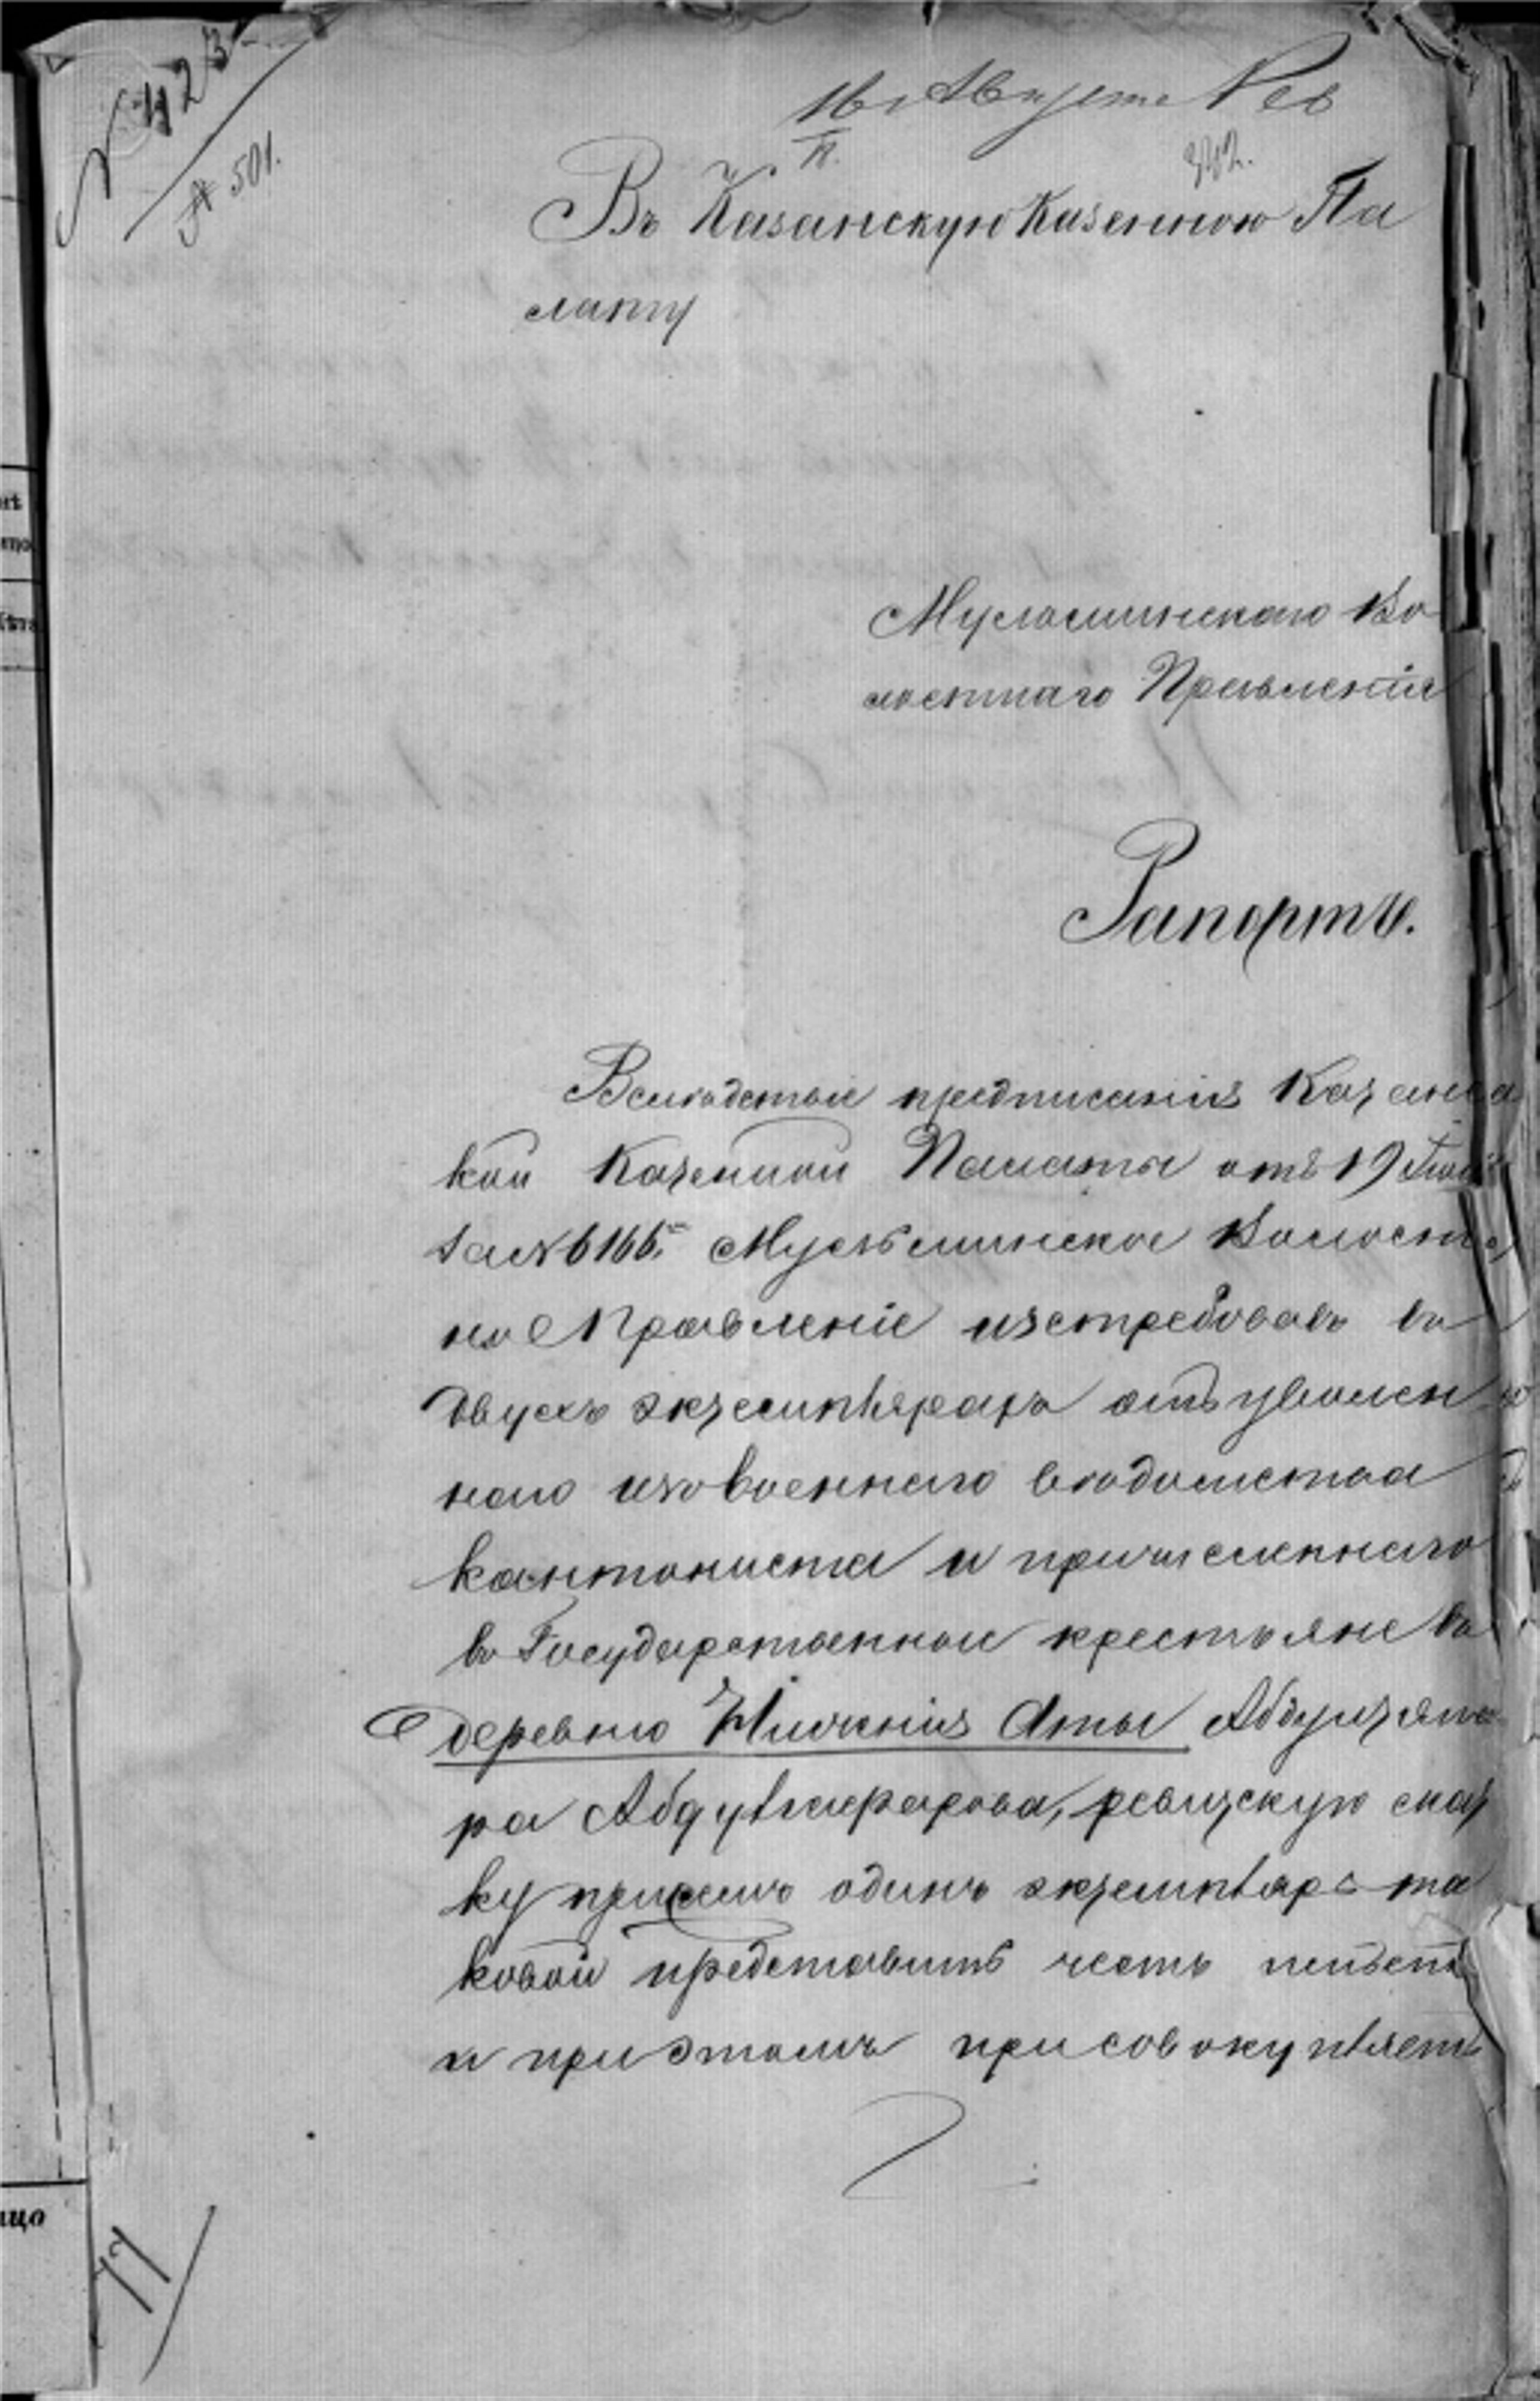 № 423
№ 501.
16 Августа Рев
Въ Казанскую Казенною Па
лату
Мульминскаго Во
лостнаго Правленія
Рапортъ.
Вслѣдствіе предписанія Казанс
кой Казенной Палаты отъ 19 Іюля
за № 6166, Мульминское Волост
ное Правленіе изстребовавъ въ
двухъ экземплярахъ отъ уволен
наго изъ военнаго вѣдомства
кантониста и причисленнаго
въ Государственные крестьяне въ
деревню Нижнія Аты Абдулзяпа
ра Абдулгафарова, ревизскую сказ
ку при семъ одинъ экземпляръ та
ковой представить честь имѣетъ
и при этомъ присовокупляетъ
ицо
77